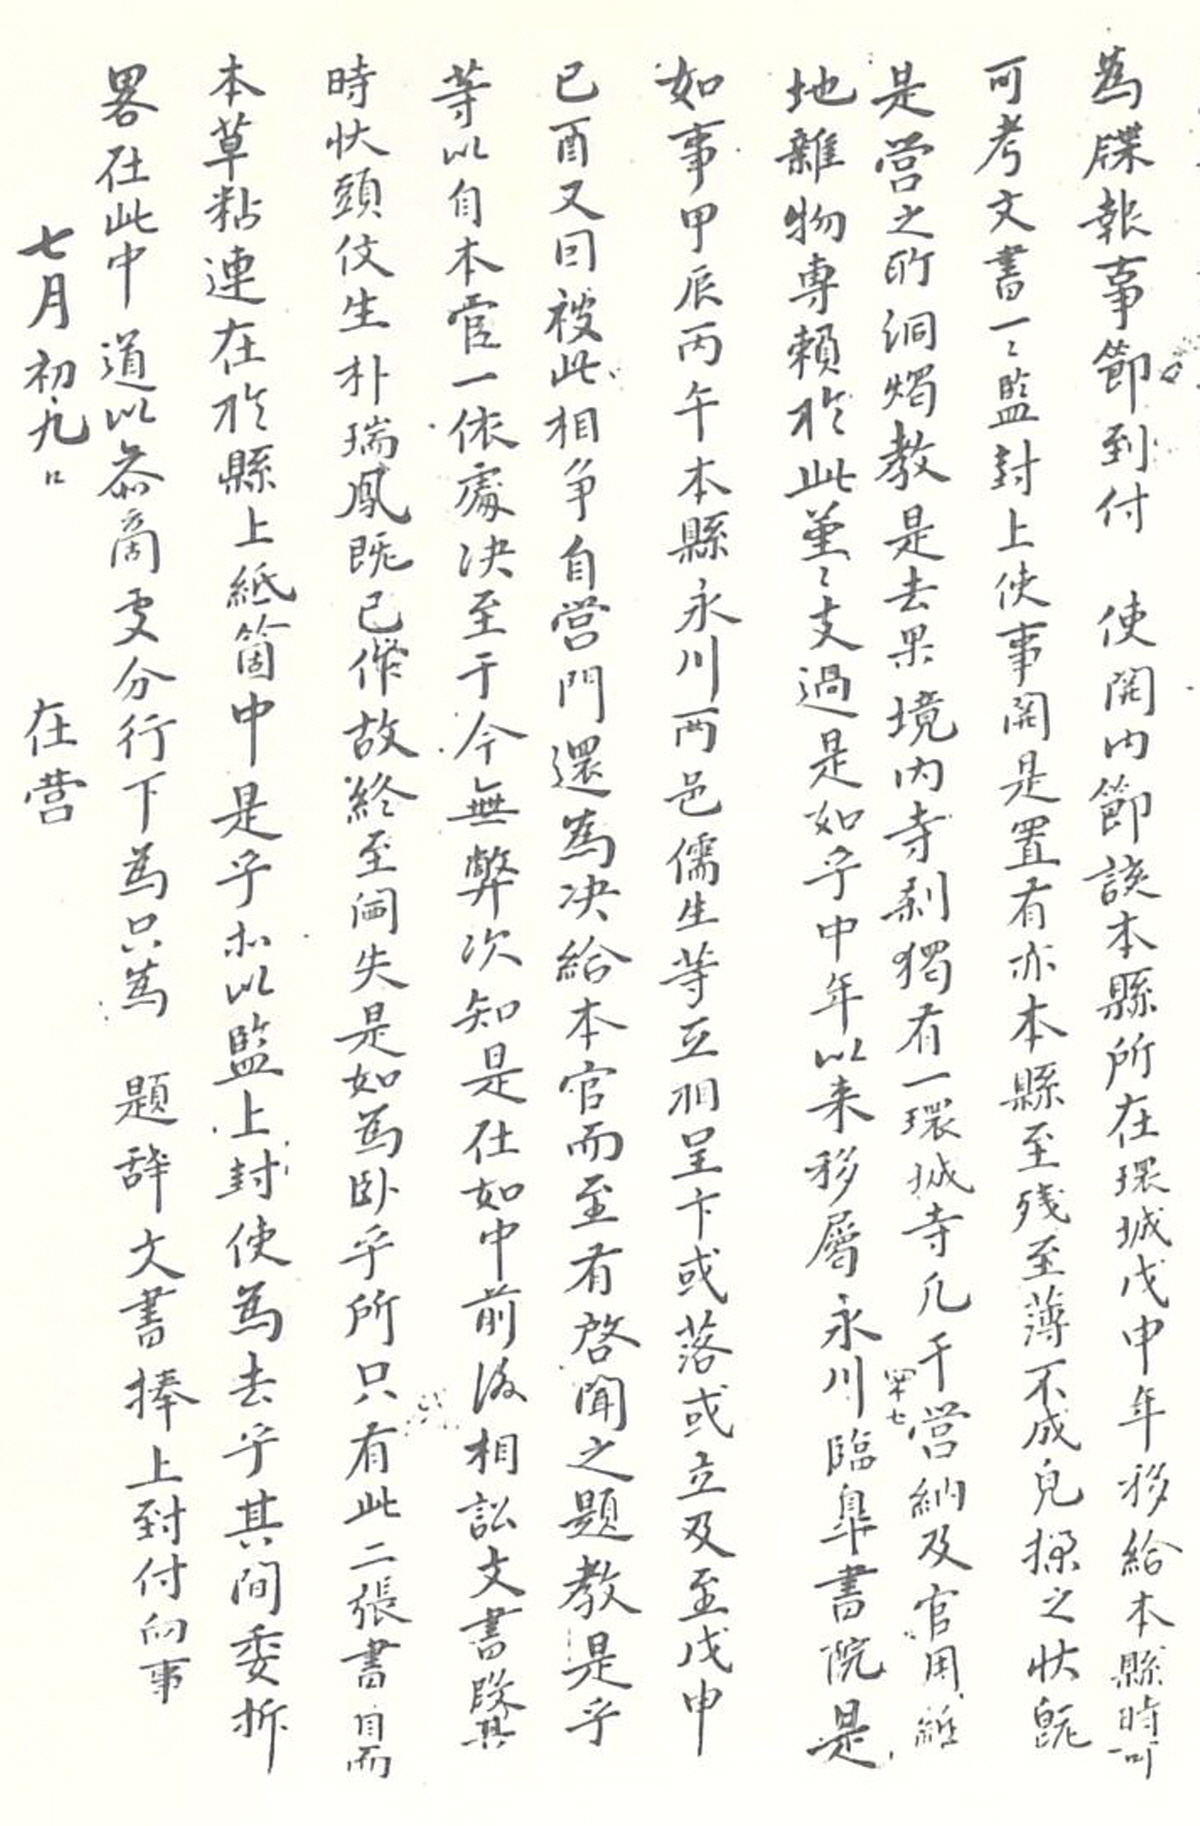 為牒報事節到付 使関内節該本縣所在環城戊申年移給本縣時可
可考文書一〻監封上使事関是置有亦本縣至殘至薄不成皃㨾之狀旣
是營之所洞燭敎是去果境內寺刹獨有一環城寺凡干營納及官用紙
地雜物專賴於此堇〻支過是如乎中年以来移屬永川臨皐書院是
如事甲辰丙午本縣永川兩邑儒生等互相呈卞或落或立及至戊申
已酉又因彼此相爭自營門還為决給本官而至有啓聞之題敎是乎
等以自本官一依處决至于今無弊次知是在如中前後相訟文書段其
時狀頭佼生朴瑞鳳旣已作故終至闒失是如為卧乎所只有此二張書自而
本草粘連在於縣上紙箇中是乎尒以監上封使為去乎其間委折
畧在此中 道以叅商處分行下為只為 題辭文書捧上到付向事
七月初九日 在營
四十七